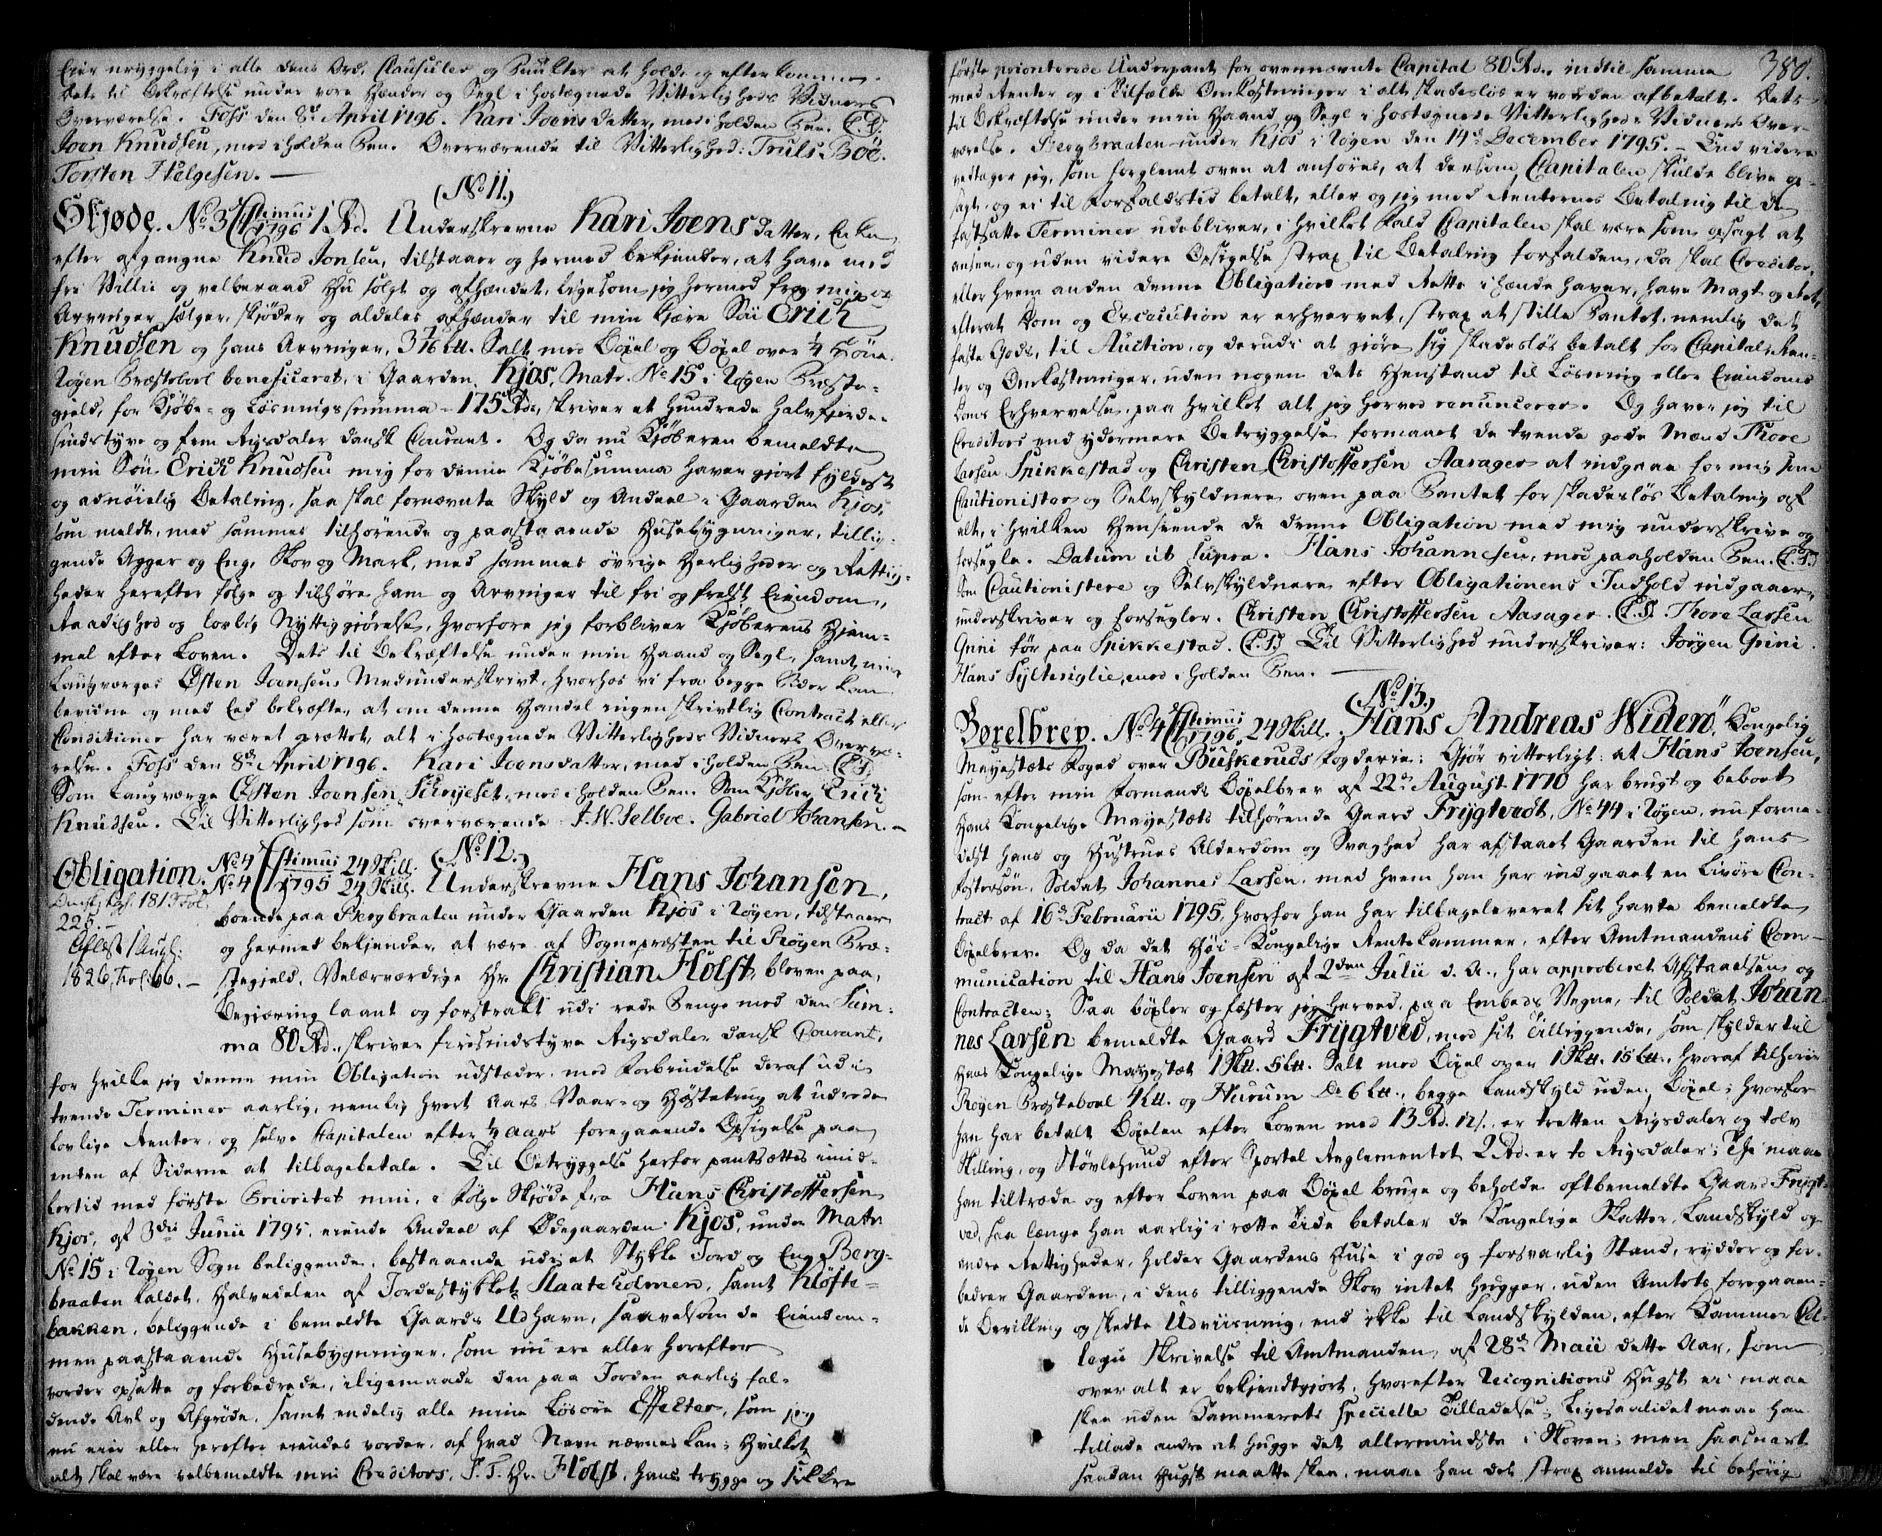 Eier uryggelig i alle dens Ord, Clausuler og Puncter at holde og efterkomme.
Dets til Bekræftelse under vore Hænder og Segl i hostegnede Vitterligheds Vidners
Overværelse. Foss den 8de April 1796. Kari Joens datter, med iholden Pen. (L.S.)
Joen Knudsen, med iholden Pen. Overværende til Vitterlighed: Truls Böe.
Torsten Helgesen. —
(No 11.)
Skjøde. No 3 Stimus 1796 1 Rd. Underskrevne Kari Joens datter, Enke
efter afgangne Knud Jonsen, tilstaaer og hermed bekjender, at have med
fri Villie og velberaad Hu solgt og afhændet, ligesom jeg hermed fra mig og
Arvinger sælger, skjøder og aldeles afhænder til min kjære Søn Erich
Knudsen og hans Arvinger, 3 1/16 Ltt. Salt med Bøxel og Bøxel over 1/4 Höne
Røgen Præstebord beneficeret, i Gaarden Kjos, Matr. No 15 i Røgen Præste-
gield, for Kjøbe- og Løsningssumma - 175 Rd., skriver et Hundrede Halvfjerde-
sindstyve og fem Rigsdaler dansk Courant. Og da nu Kjøberen bemeldte
min Søn Erich Knudsen mig for denne Kjøbesumma haver gjort fyldest
og adnøielig Betaling, saa skal fornævnte Skyld og Andeel i Gaarden Kjos,
som meldt, med sammes tilhørende og paastaaende Husebygninger, tillig-
gende Agger og Eng, Skov og Mark, med sammes øvrige Herligheder og Rettig-
heder herefter følge og tilhøre ham og Arvinger til fri og frelst Eiendom,
Raadighed og lovlig Nyttiggjørelse, hvorfore jeg forbliver Kjøberens Hjem-
mel efter Loven. Dets til Bekræftelse under min Haand og Segl, samt min
Laugværges Østen Joensens Medunderskrivt, hvorhos vi fra begge Sider kan
bevidne og med Eed bekræfte, at om denne Handel ingen skrivtlig Contract eller
Conditioner har været oprettet, alt i hostegnede Vitterligheds Vidners Overvæ-
relse. Foss den 8de April 1796. Kari Joensdatter, med iholden Pen. (L.S.)
Som Laugværge Østen Joensen, med iholden Pen. Som Kjøber Erich
Knudsen. Til Vitterlighed som overværende J. W. Selboe. Gabriel Johansen. —
(No 12.)
Obligation. No 4 Stimus 24 Skill.
No 4 1795 24 Skill. Underskrevne Hans Johansen,
225. —
Aflæst 1 Aug:
1826, Fol: 66. —
boende paa Bergbraaten under Gaarden Kjos i Røgen, tilstaaer
og hermed bekjender, at være af Sognepræsten til Røgen Præ-
stegjeld, Velærværdige Hr. Christian Holst, bleven paa
Begjæring laant og forstrakt udi rede Penge med den Sum-
ma 80 Rd., skriver firesindstyve Rigsdaler dansk Courant,
for hvilke jeg denne min Obligation udstæder, med Forbindelse deraf udi
tvende Terminer aarlig, nemlig hvert Aars Vaar- og Høstetrug at udrede
lovlige Renter, og selve Kapitalen efter 1/4 Aars foregaaende Opsigelse paa
enten af Siderne at tilbagebetale. Til Betryggelse herfor pantsættes imid-
lertid med første Prioritet min, i Følge Skjøde fra Hans Christoffersen
Kjos, af 3die Junii 1795, eiende Andeel af Ødegaarden Kjos, under Matr.
No 15 i Røgen Sogn beliggende, bestaaende udi et Stykke Jord og Eng Berg-
braaten kaldet, Halvedelen af Jordestykket Slaateholmen, samt Kløfte-
bakken, beliggende i bemeldte Gaards Udhavn, saavelsom de Eiendom-
men paastaaende Husebygninger, som nu ere eller herefter
vorder opsatte og forbedrede, iligemaade den paa Jorden aarlig fal-
dende Avl og Afgrøde, samt endelig alle mine Løsøre Effecter, som jeg
nu eier eller herefter eiendes vorder, af hvad Navn nævnes kan; Hvilket
alt skal være velbemeldte min Creditors, S. T. Hr. Holst, hans trygge og sikkre
380.
første prioriterede Underpant for ovennævnte Capital 80 Rd., indtil samme
med Renter og i Tilfælde Omkostninger i alt skadesløs er vorden afbetalt. Dets
til Bekræftelse under min Haand og Segl i hostegnede Vitterligheds Vidners Over-
værelse. Bergbraaten under Kjos i Røgen den 14de December 1795. — End videre
vedtager jeg, som forglemt oven at anføres, at dersom Capitalen skulde blive op-
sagt og ei til Forfaldstid betalt, eller og jeg med Renternes Betaling til de
fastsatte Terminer udebliver, i hvilket Fald Capitalen skal være som opsagt at
ansee, og uden videre Opsigelse strax til Betaling forfalden, da skal Creditor,
eller hvem anden denne Obligation med Rette ihænde haver, have Magt og Ret,
efterat Dom og Execution er erhvervet, strax at stille Pantet, nemlig det
faste Gods, til Auction, og derudi at gjøre sig skadesløs betalt for Capital, Ren-
ter og Omkostninger, uden nogen dets Henstand til Løsning eller Eiendoms
Doms Erhvervelse, paa hvilket alt jeg herved renuncerer. Og haver jeg til
Creditors end ydermere Betryggelse formaaet de tvende gode Mænd Thore
Larsen Spikkestad og Christen Christoffersen Aasager at indgaae for mig som
Cautionister og Selvskyldnere oven paa Pantet for skadesløs Betaling af
alt, i hvilken Henseende de denne Obligation med mig underskrive og
forsegle. Datum ut supra. Hans Johannesen, med paaholden Pen. (L.S.)
Som Cautionistere og Selvskyldnere efter Obligationens Indhold indgaaer,
underskriver og forsegler. Christen Christoffersen Aasager. (L.S.) Thore Larsen
Grini før paa Spikkestad. (L.S.) Til Vitterlighed underskriver: Jørgen Grini.
Hans Sylteriglie, med iholden Pen. —
(No 13.)
Bøxelbrev. No 4 Stimus 1796, 24 Skill. Hans Andreas Widerö, Kongelig
Mayestæts Foged over Buskeruds Fogderie; Gjør vitterligt: at Hans Joensen,
som efter min Formands Bøxelbrev af 22de August 1770 har brugt og beboet
Hans Kongelige Mayestæts tilhørende Gaard Frygtvedt, No 44 i Røgen, nu forme-
delst hans og Hustrues Alderdom og Svaghed har afstaaet Gaarden til hans
Fostersøn, Soldat Johannes Larsen, med hvem han har indgaaet en Livøre Con-
tract af 16de Februarii 1795, hvorfor han har tilbageleveret sit havte bemeldte
Bøxelbrev. Og da det Høi-Kongelige Rentekammer, efter Amtmandens Com-
munication til Hans Joensen af 2den Julii d. A., har approberet Afstaaelsen og
Contracten; Saa bøxler og fæster jeg herved, paa Embeds Vegne, til Soldat Johan-
nes Larsen bemeldte Gaard Frygtved, med sit Tilliggende, som skylder til
Hans Kongelige Mayestæt 1 Skt. 5 Ltt. Salt med Bøxel over 1 Skt. 15 Ltt., hvoraf tilhører
Røgen Præsteboel 4 Ltt. og Hurum Do 6 Ltt., begge Landskyld uden Bøxel; hvorfor
han har betalt Bøxelen efter Loven med 13 Rd. 12 s., er tretten Rigsdaler og tolv
Skilling, og Støvlehud efter Sportel Reglementet 2 Rd. er to Rigsdaler; Thi maae
han tiltræde og efter Loven paa Bøxel bruge og beholde oftbemeldte Gaard Frygt-
ved, saa længe han aarlig i rette Tide betaler de Kongelige Skatter, Landskyld og
andre Rettigheder, holder Gaardens Huse i god og forsvarlig Stand, rydder og for-
bedrer Gaarden, i dens tilliggende Skov intet hugger, uden Amtets foregaaen-
de Bevilling og skedte Udviisning, end ikke til Landskylden, efter Kammer Col-
legii Skrivelse til Amtmanden, af 28de Maii dette Aar, som
over alt er bekjendtgjort, hvorefter Recognitions Hugst ei maae
skee uden Kammerets specielle Tilladelse; Ligesaalidet maae han
tillade andre at hugge det allermindste i Skoven; men saasnart
saadan Hugst maatte skee, maae han det strax anmelde til behørig